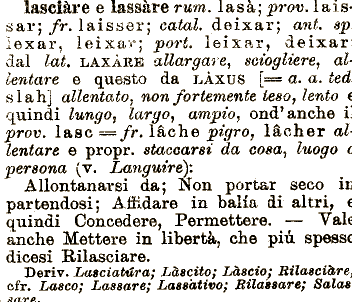 lasciàre e lassàre rum. lasà; prov. lais-
sar; fr. laisser; catal. deixar; ant. sp
lexar, leixar; port. leixar, deixar
dal lat. LAXÀRE allargare, sciogliere, al-
lentare e questo da LÀXUS [= a. a. ted
slah] allentato, non fortemente teso, lento e
quindi lungo, largo, ampio, ond'anche il
prov. lasc = fr. lâche pigro, lâcher al-
lentare e propr. staccarsi da cosa, luogo o
persona (v. Languire):
Allontanarsi da; Non portar seco in
partendosi; Affidare in balía di altri, e
quindi Concedere, Permettere. — Vale
anche Mettere in libertà, che piú spesso
dicesi Rilasciare.
Deriv. Lasciatúra; Làscito; Làscio; Rilasciàre,
cfr. Lasco; Lassare; Lassativo; Rilassare; Salas
sare.